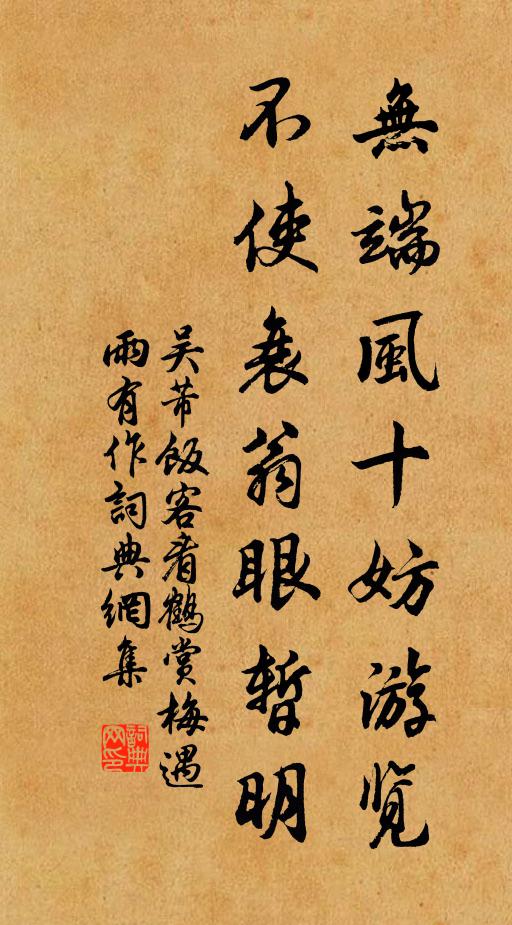 無端風十妨游览
不使衰翁眼暫明
吴芾飯客看鶴賞梅遇
雨有作詞典網集
詞典
网印